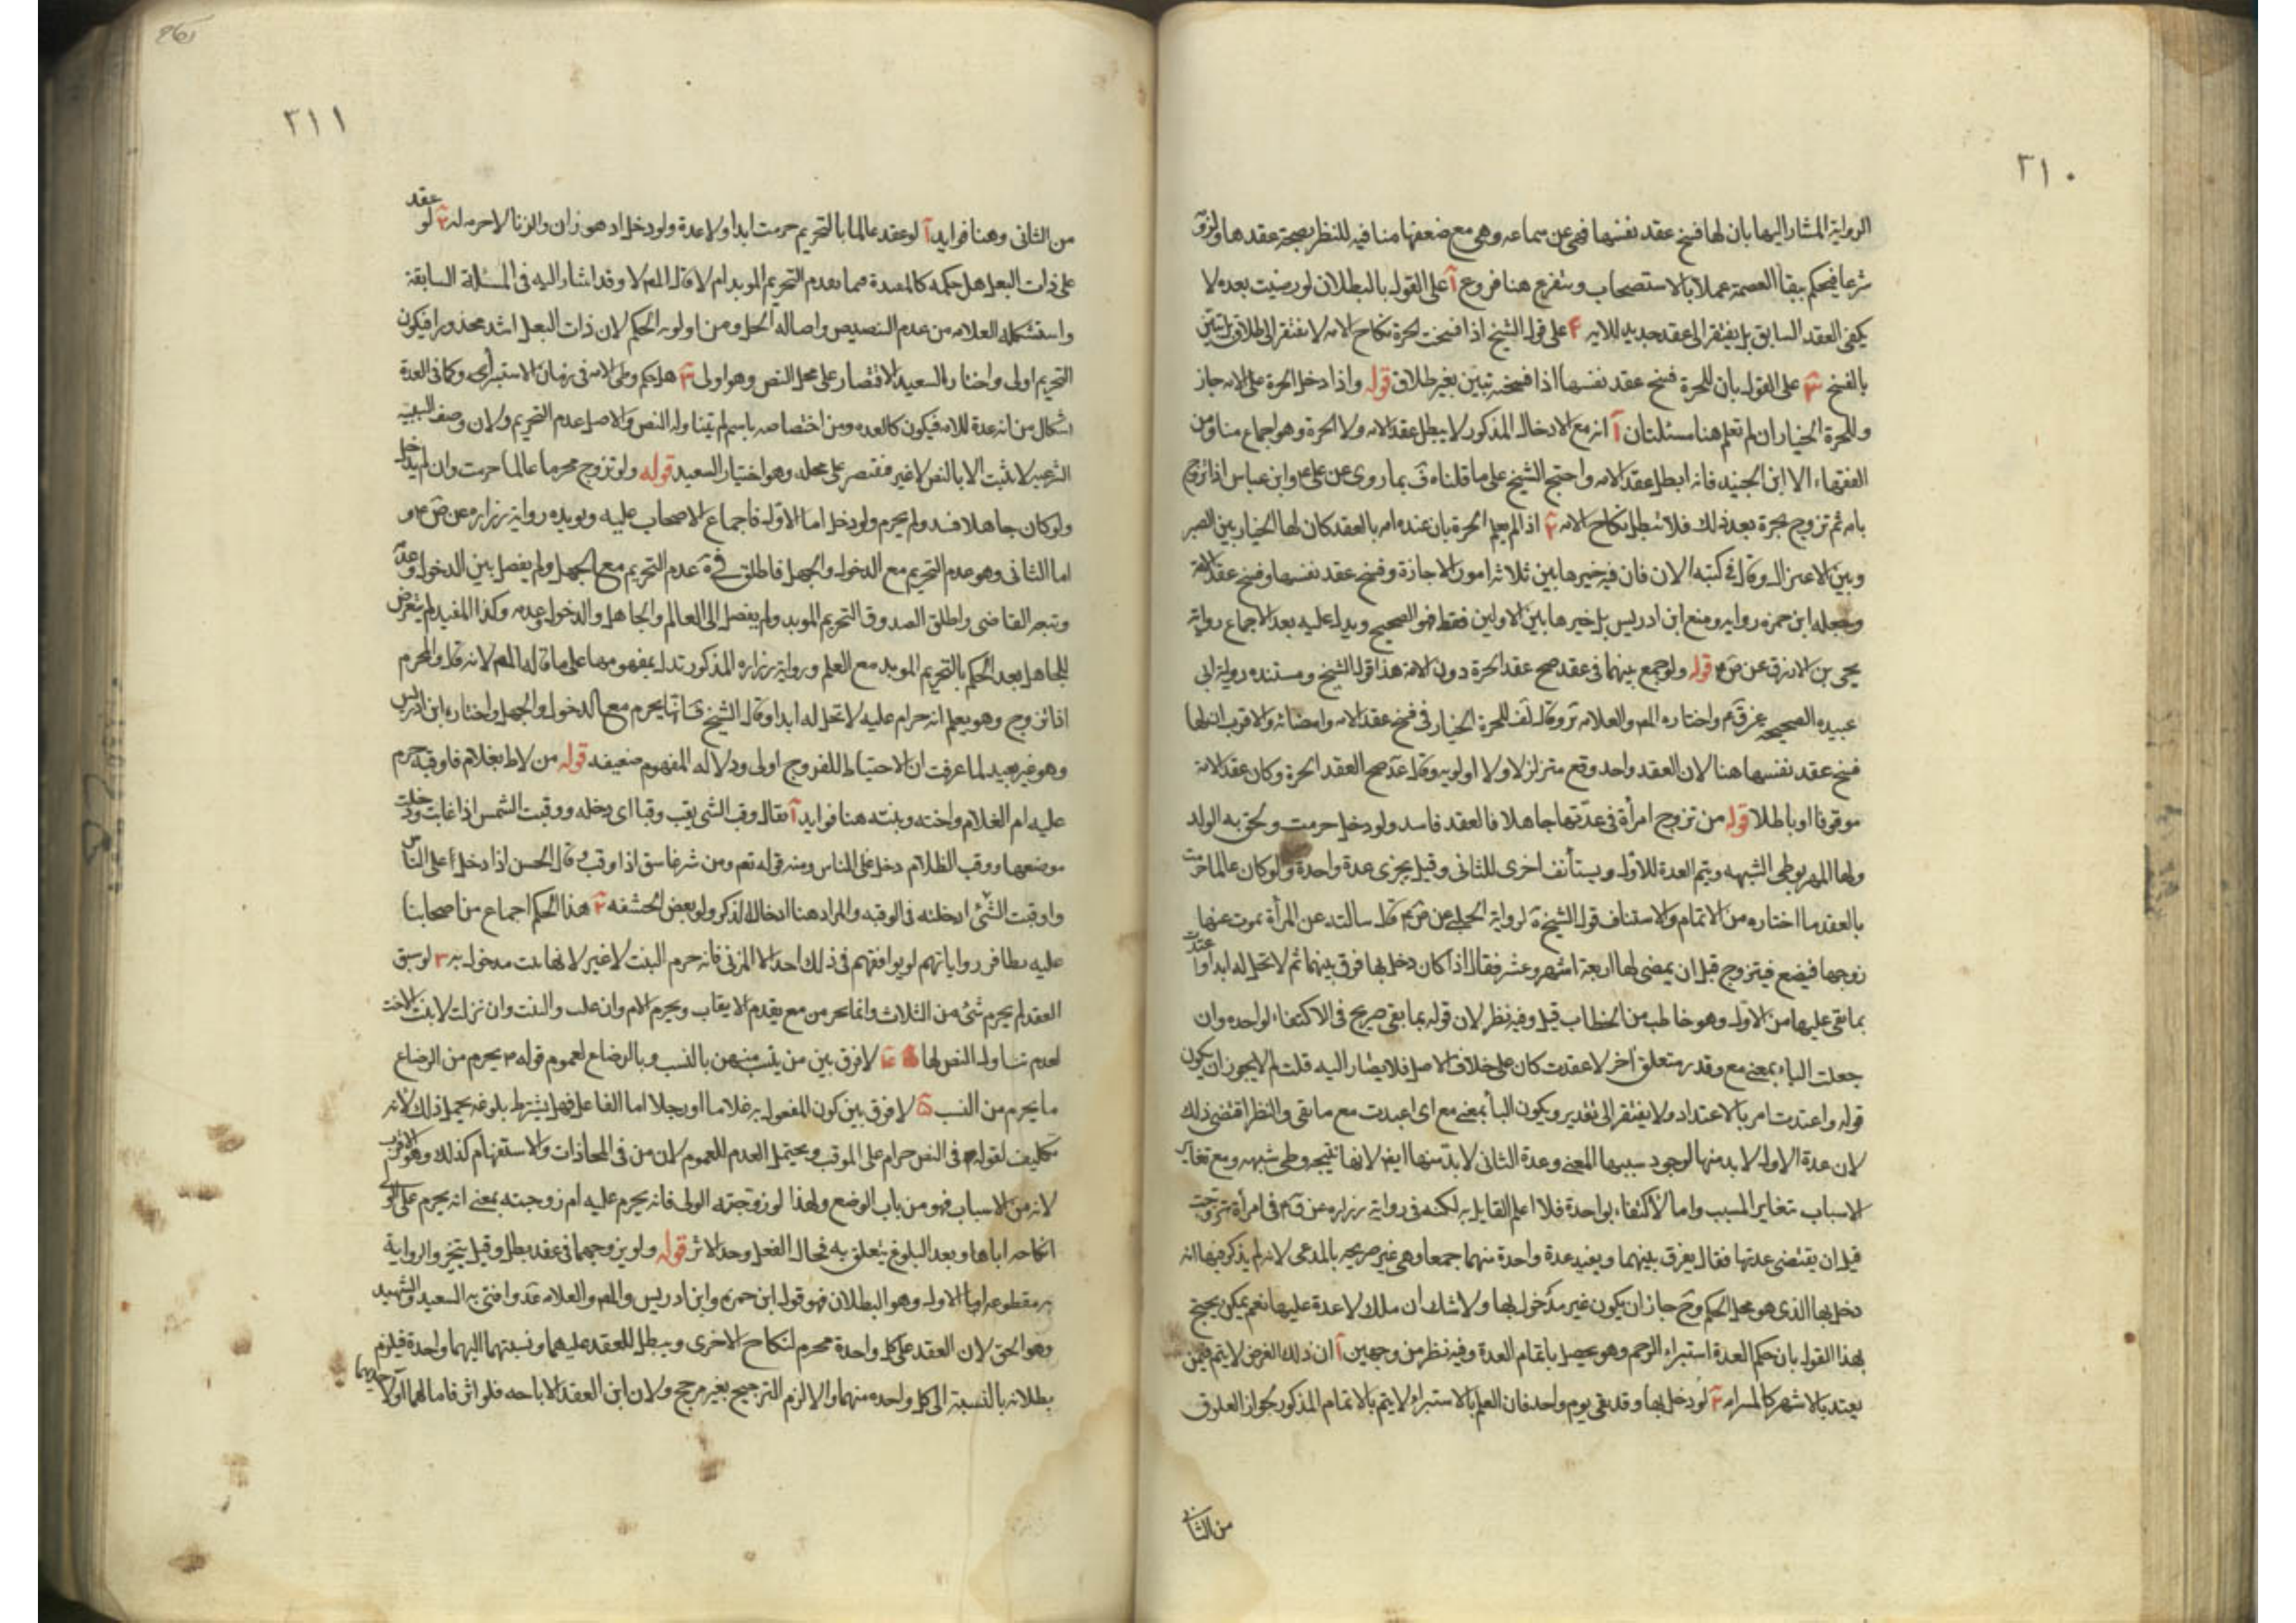 ٣١٠
الرواية المشار اليها بان لها فسخ عقد نفسها فهى عن سماعه وهى مع ضعفها منافيه للنظر بصحة عقدها ولزو
شرعا فيحكم ببقا العصمة عملا بالاستصحاب ويتفرع هنا فروع آ على القول بالبطلان لو رضيت بعده لا
يكفى العقد السابق بل يفتقر الى عقد جديد للايه ٢ على قول الشيخ اذا فسخت الحرة نكاح الامه لا يفتقر الى طلاق بل تبين
بالفسخ ٣ على القول بان للحرة فسخ عقد نفسها اذا فسخته تبين بغير طلاق قوله واذا دخل الحرة على الامه جاز
وللحرة الخيار ان لم تعلم هنا مسئلتان آ انه مع الادخال المذكور لا يبطل عقد الامه ولا الحرة وهو اجماع منا ومن
الفقهاء الا ابن الجنيد فانه ابطل عقد الامه واحتج الشيخ على ما قلناه فى بما روى عن على ع وابن عباس اذا تزوج
بامه ثم تزوج بحرة بعد ذلك فلا تبطل نكاح الامه ٢ اذا لم يعلم الحرة بان عنده امه بالعقد كان لها الخيار بين الصبر
وبين الاعتزال وقال فى كتبه الان فان فيه خيرها بين ثلاثه امور الاجازة وفسخ عقد نفسها وفسخ عقد الامة
وجعله ابن حمزه روايه ومنع ابن ادريس بل خيرها بين الاولين فقط فهو الصحيح ويدل عليه بعد الاجماع رواية
يحى بن الازرق عن ص ع قوله ولو جمع بينهما فى عقد صح عقد الحرة دون الامة هذا قول الشيخ ومستنده رواية ابى
عبيده الصحيحه عن ق ع واختاره المص والعلامه ير وقال لف للحرة الخيار فى فسخ عقد الامه وامضائه والاقرب ان لها
فسخ عقد نفسها هنا لان العقد واحد وقع متزلزلا ولا اولويه وقال عد صح العقد الحرة وكان عقد الامة
موقوفا او باطلا قوله من تزوج امرأة فى عدتها جاهلا فالعقد فاسد ولو دخل حرمت ولحق به الولد
ولها المهر بوطى الشبهه ويتم العدة للاول ويستأنف اخرى للثانى وقيل يجزى عدة واحدة ولو كان عالما حرمت
بالعقد ما اختاره من الاتمام والاستناف قول الشيخ ية لرواية الحلبى عن ص ع قال سالته عن المرأة يموت عنها
زوجها فيضع فيتزوج قبل ان يمضى لها اربعة اشهر وعشر فقال اذا كان دخل بها فرق بينهما ثم لا تحل له ابدا واعتدت
بما بقى عليها من الاول وهو خاطب من الخطاب قيل وفيه نظر لان قوله بما بقى صريح فى الاكتفاء لواحده وان
جعلت الباء بمعنى مع وقدر متعلق آخر لاعتدت كان على خلاف الاصل فلا يصار اليه قلت لم لا يجوز ان يكون
قوله واعتدت امر بالاعتداد ولا يفتقر الى تقدير ويكون البا بمعنى مع اى اعتدت مع ما بقى والنظر اقتضى ذلك
لان عدة الاول لابد منها لوجود سببها المعنى وعدة الثانى لابد منها ايض لانها نتيجه وطى شبهه ومع تغاير
الاسباب تتغاير المسبب واما الاكتفاء بواحدة فلا اعلم القايل به لكنه فى رواية زراره عن ق ع فى امرأة تزوجت
قبل ان يقتضى عدتها فقال يفرق بينهما ويعتد عدة واحدة منهما جمعا وهى غير صريحه بالمدعى لانه لم يذكر فيها انه
دخل بها الذى هو محل الحكم وح جاز ان يكون غير مدخول بها ولا شك ان ملك لا عدة عليها نعم يمكن يحتج
لهذا القول بان حكم العدة استبراء الرحم وهو يحصل باتمام العدة وفيه نظر من وجهين آ ان ذلك الغرض لا يتم فيمن
يعتد بالاشهر كالمسرابه ٢ لو دخل بها وقد بقى يوم واحد فان العلم بالاستبراء لا يتم بالاتمام المذكور لجواز العلوق
من الثانى
٣١١
من الثانى وهنا فوايد آ لو عقد عالما بالتحريم حرمت ابدا ولا عدة ولو دخل اذ هو زان والزنا لا حرمه له ٢ لو عقد
على ذات البعل هل حكمه كالمعتدة مما تعدم التحريم الموبد ام لا قال المص لا وقد اشار اليه فى المسئلة السابقة
واستشكله العلامه من عدم التنصيص واصاله الحل ومن اولويه الحكم لان ذات البعل اشد محذورا فيكون
التحريم اولى واختار السعيد الاقتصار على محل النص وهو اولى ٣ هل حكم وطى الامه فى زمان الاستبراء وكما فى العدة
اشكال من انه عدة للامه فيكون كالعده ومن اختصاصه باسم لم يتناوله النص والاصل عدم التحريم ولان وصف السببيه
الشرعيه لا يثبت الا بالنص لا غير فيقتصر على محله وهو اختيار السعيد قوله ولو تزوج محرما عالما حرمت وان لم يدخل
ولو كان جاهلا فسد ولم يحرم ولو دخل اما الاول فاجماع الاصحاب عليه ويويده رواية زراره عن ص ع و
اما الثانى وهو عدم التحريم مع الدخول والجهل فاطلق فى ية عدم التحريم مع الجهل ولم يفصل بين الدخول وعدمه
وتبعه القاضى واطلق الصدوق التحريم الموبد ولم يفصل الى العالم والجاهل والدخول وعدمه وكذا المفيد لم يتعرض
للجاهل بعد الحكم بالتحريم الموبد مع العلم ورواية زراره المذكور تدل بمفهومها على ما قاله المص لانه قال والمحرم
اذا تزوج وهو يعلم انه حرام عليه لا تحل له ابدا وقال الشيخ ف انها يحرم مع الدخول والجهل واختاره ابن ادريس
وهو غير بعيد لما عرفت ان الاحتياط للفروج اولى ودلاله المفهوم ضعيفه قوله من لاط بغلام فاوقبه حرم
عليه ام الغلام واخته وبنته هنا فوايد آ يقال وقب الشى يقب وقبا اى دخله ووقبت الشمس اذا غابت ودخلت
موضعها ووقب الظلام دخل على الناس ومنه قوله تع ومن شر غاسق اذا وقب وقال الحسن اذا دخل على الناس
واوقبت الشئ ادخلته فى الوقبه والمراد هنا ادخال الذكر ولو بعض الحشفه ٢ هذا الحكم اجماع من اصحابنا
عليه تظافر رواياتهم لو يوافقهم فى ذلك احد الا المزنى فانه حرم البنت لا غير لانها بنت مدخول به ٣ لو سبق
العقد لم يحرم شئ من الثلاث وانما يحر من مع يقدم الايقاب ويحرم الام وان علت والبنت وان نزلت لا بنت الاخت
لعدم تناول النص لها ٤ لا فرق بين من يتسبب منهن بالنسب وبالرضاع لعموم قوله ع يحرم من الرضاع
ما يحرم من النسب ۵ لا فرق بين كون المفعول به غلاما او رجلا اما الفاعل فهل يشترط بلوغه يحمل ذلك لانه
تكليف لقوله ع فى النص حرام على الموقب ويحتمل العدم للعموم لان من فى المجازات والاستفهام كذلك وهو الاقرب
لانه من الاسباب فهو من باب الوضع ولهذا لو زوجته الولى فانه يحرم عليه ام زوجته بمعنى انه يحرم على الولى
انكاحه اياها وبعد البلوغ يتعلق به فحال الفعل وحد الاثر قوله ولو بزوجهما فى عقد بطل وقيل يتخير والرواية
به مقطوعه اما الاول وهو البطلان فهو قول ابن حمزه وابن ادريس والمص والعلامه عد وافتى به السعيد والشهيد
وهو الحق لان العقد على كل واحدة محرم لنكاح الاخرى ويبطل للعقد عليهما ونسبتهما اليهما واحدة فيلزم
بطلانه بالنسبة الى كل واحده منهما والا لزم الترجيح بغير مرجح ولان ابن العقد الاباحه فلو اثر فاما لهما او لاحديهما